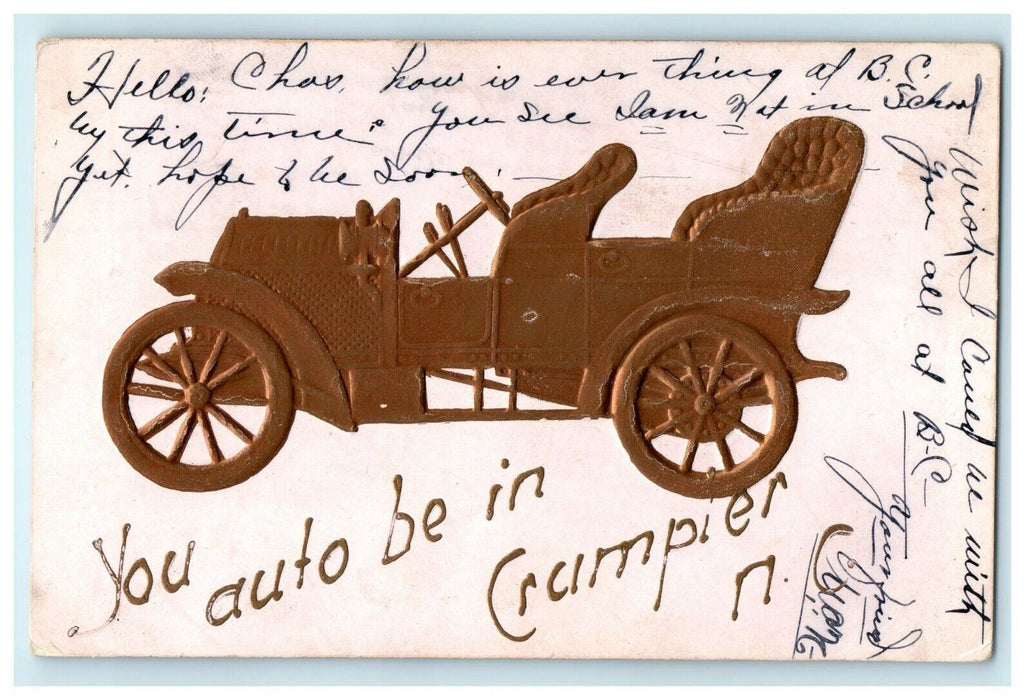 Hello; Chas. how is ever thing at B.C. School
by this time? You see I am Not in
yet. hope to be Soon.
Wish I Could be with
you all at B-C-
Your friend
You auto be in
Crumpler
n.